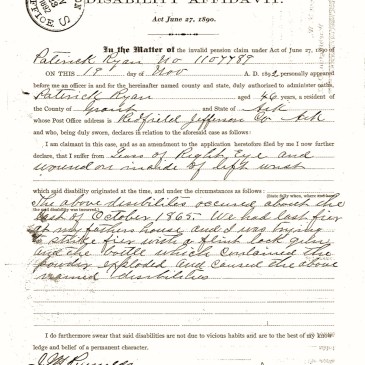 DISABILITY AFFIDAVIT.
Act June 27, 1890.
In the Matter of the invalid pension claim under Act of June 27, 1890 of
Patrick Ryan No 1107788
ON THIS 19 day of Nov A. D. 1892 personally appeared
before me an officer in and for the hereinafter named county and state, duly authorized to administer oaths,
Patrick Ryan aged 46 years, a resident of
the County of Grant and State of Ark
whose Post Office address is Redfield Jefferson Co Ark
and who, being duly sworn, declares in relation to the aforesaid case as follows:
I am claimant in this case, and as an amendment to the application heretofore filed by me I now further
declare, that I suffer from Loss of Right Eye and
wound on inside of left wrist
which said disability originated at the time, and under the circumstances as follows:
The above disibilites occured about the
last of October 1865. We had lost fier
at my fathers house and I was trying
to strike fier with a flint lock gun
and the bottle which contained the
powder exploded and caused the above
named disibilities
I do furthermore swear that said disabilities are not due to vicious habits and are to the best of my know
ledge and belief of a permanent character.